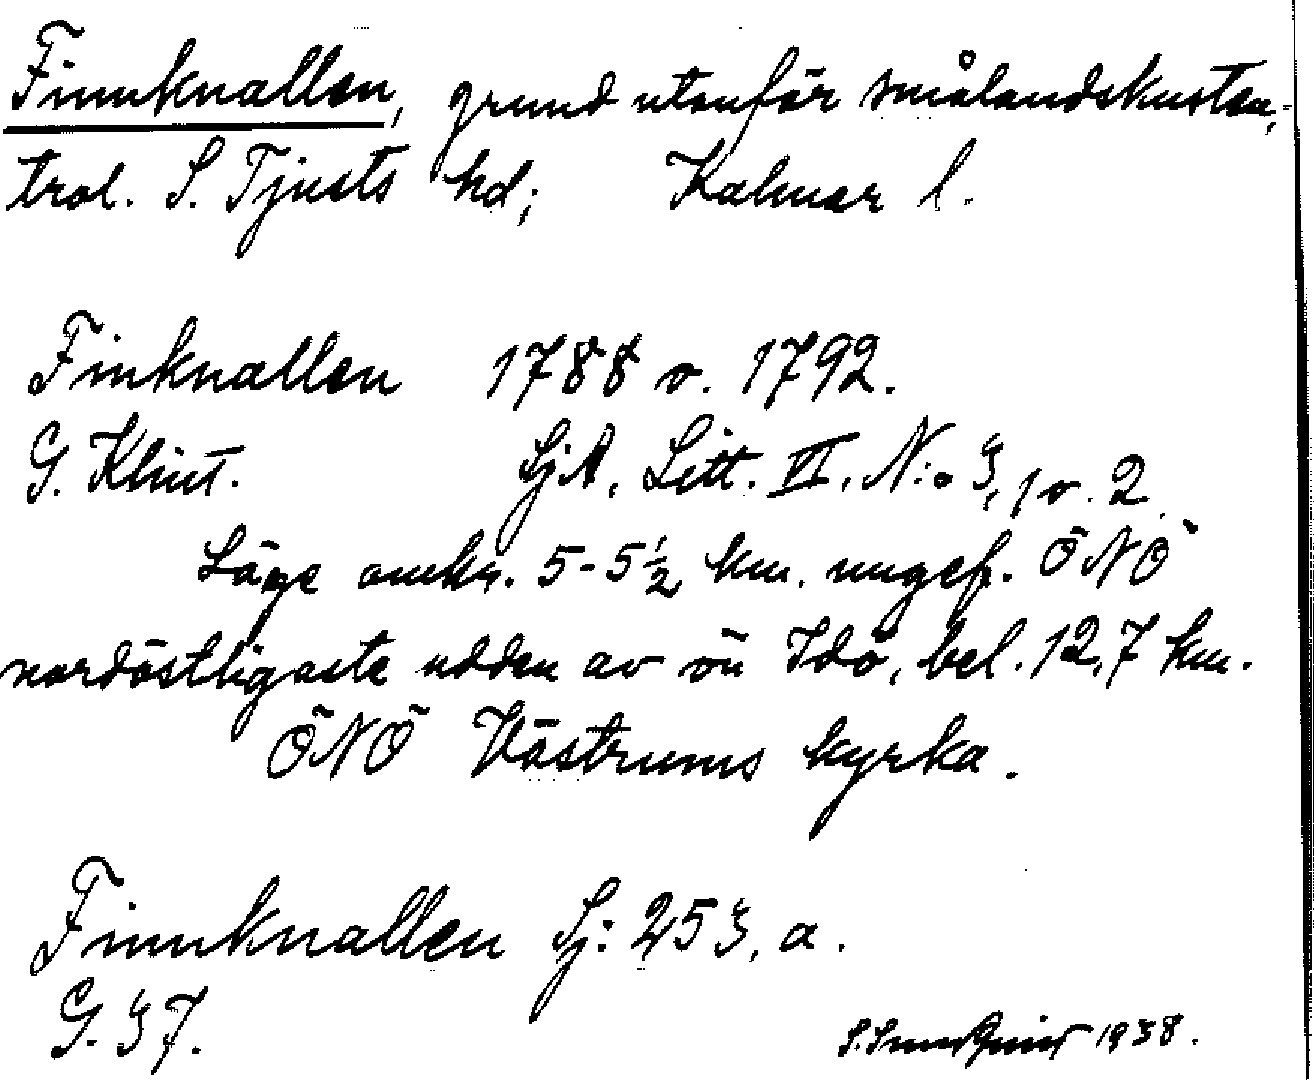 Finnknallen, grund utanför smålandskusten,
trol. S. Tjusts hd; Kalmar l.
Finknallen 1788 o. 1792.
G. Klint. SjA, Litt. VI, N:o 3, 1 o. 2.
Läge omkr. 5-5½ km. ungef. ÖNÖ
nordöstligaste udden av ön Idö, bel. 12,7 km.
ÖNÖ Västrums kyrka.
Finnknallen Sj: 253, a.
G. 37.
1938.